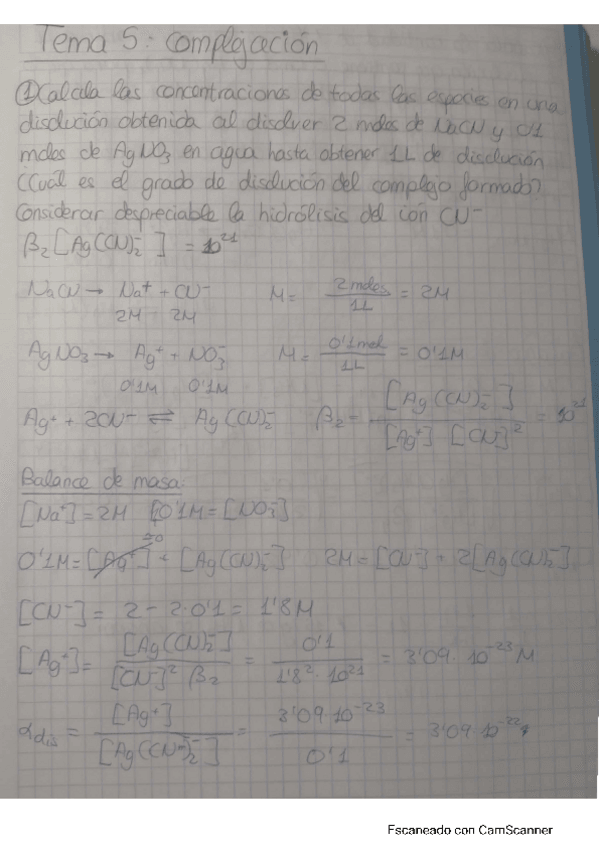 Tema 5: Complejación
① Calcula las concentraciones de todas las especies en una
disolución obtenida al disolver 2 moles de NaCN y 0'1
moles de AgNO₃ en agua hasta obtener 1L de disolución
¿Cuál es el grado de disolución del complejo formado?
Considerar despreciable la hidrólisis del ión CN⁻
β₂[Ag(CN)₂⁻] = 10²¹
NaCN → Na⁺ + CN⁻ M = 2 moles / 1L = 2M
2M 2M
AgNO₃ → Ag⁺ + NO₃⁻ M = 0'1 mol / 1L = 0'1M
0'1M 0'1M
Ag⁺ + 2CN⁻ ⇌ Ag(CN)₂⁻ β₂ = [Ag(CN)₂⁻] / [Ag⁺][CN⁻]² = 10²¹
Balance de masa:
[Na⁺] = 2M 0'1M = [NO₃⁻]
≈0
0'1M = [Ag⁺] + [Ag(CN)₂⁻] 2M = [CN⁻] + 2[Ag(CN)₂⁻]
[CN⁻] = 2 - 2·0'1 = 1'8M
[Ag⁺] = [Ag(CN)₂⁻] / [CN⁻]² β₂ = 0'1 / 1'8²·10²¹ = 3'09·10⁻²³ M
α dis = [Ag⁺] / [Ag(CN)₂⁻] = 3'09·10⁻²³ / 0'1 = 3'09·10⁻²²
Escaneado con CamScanner